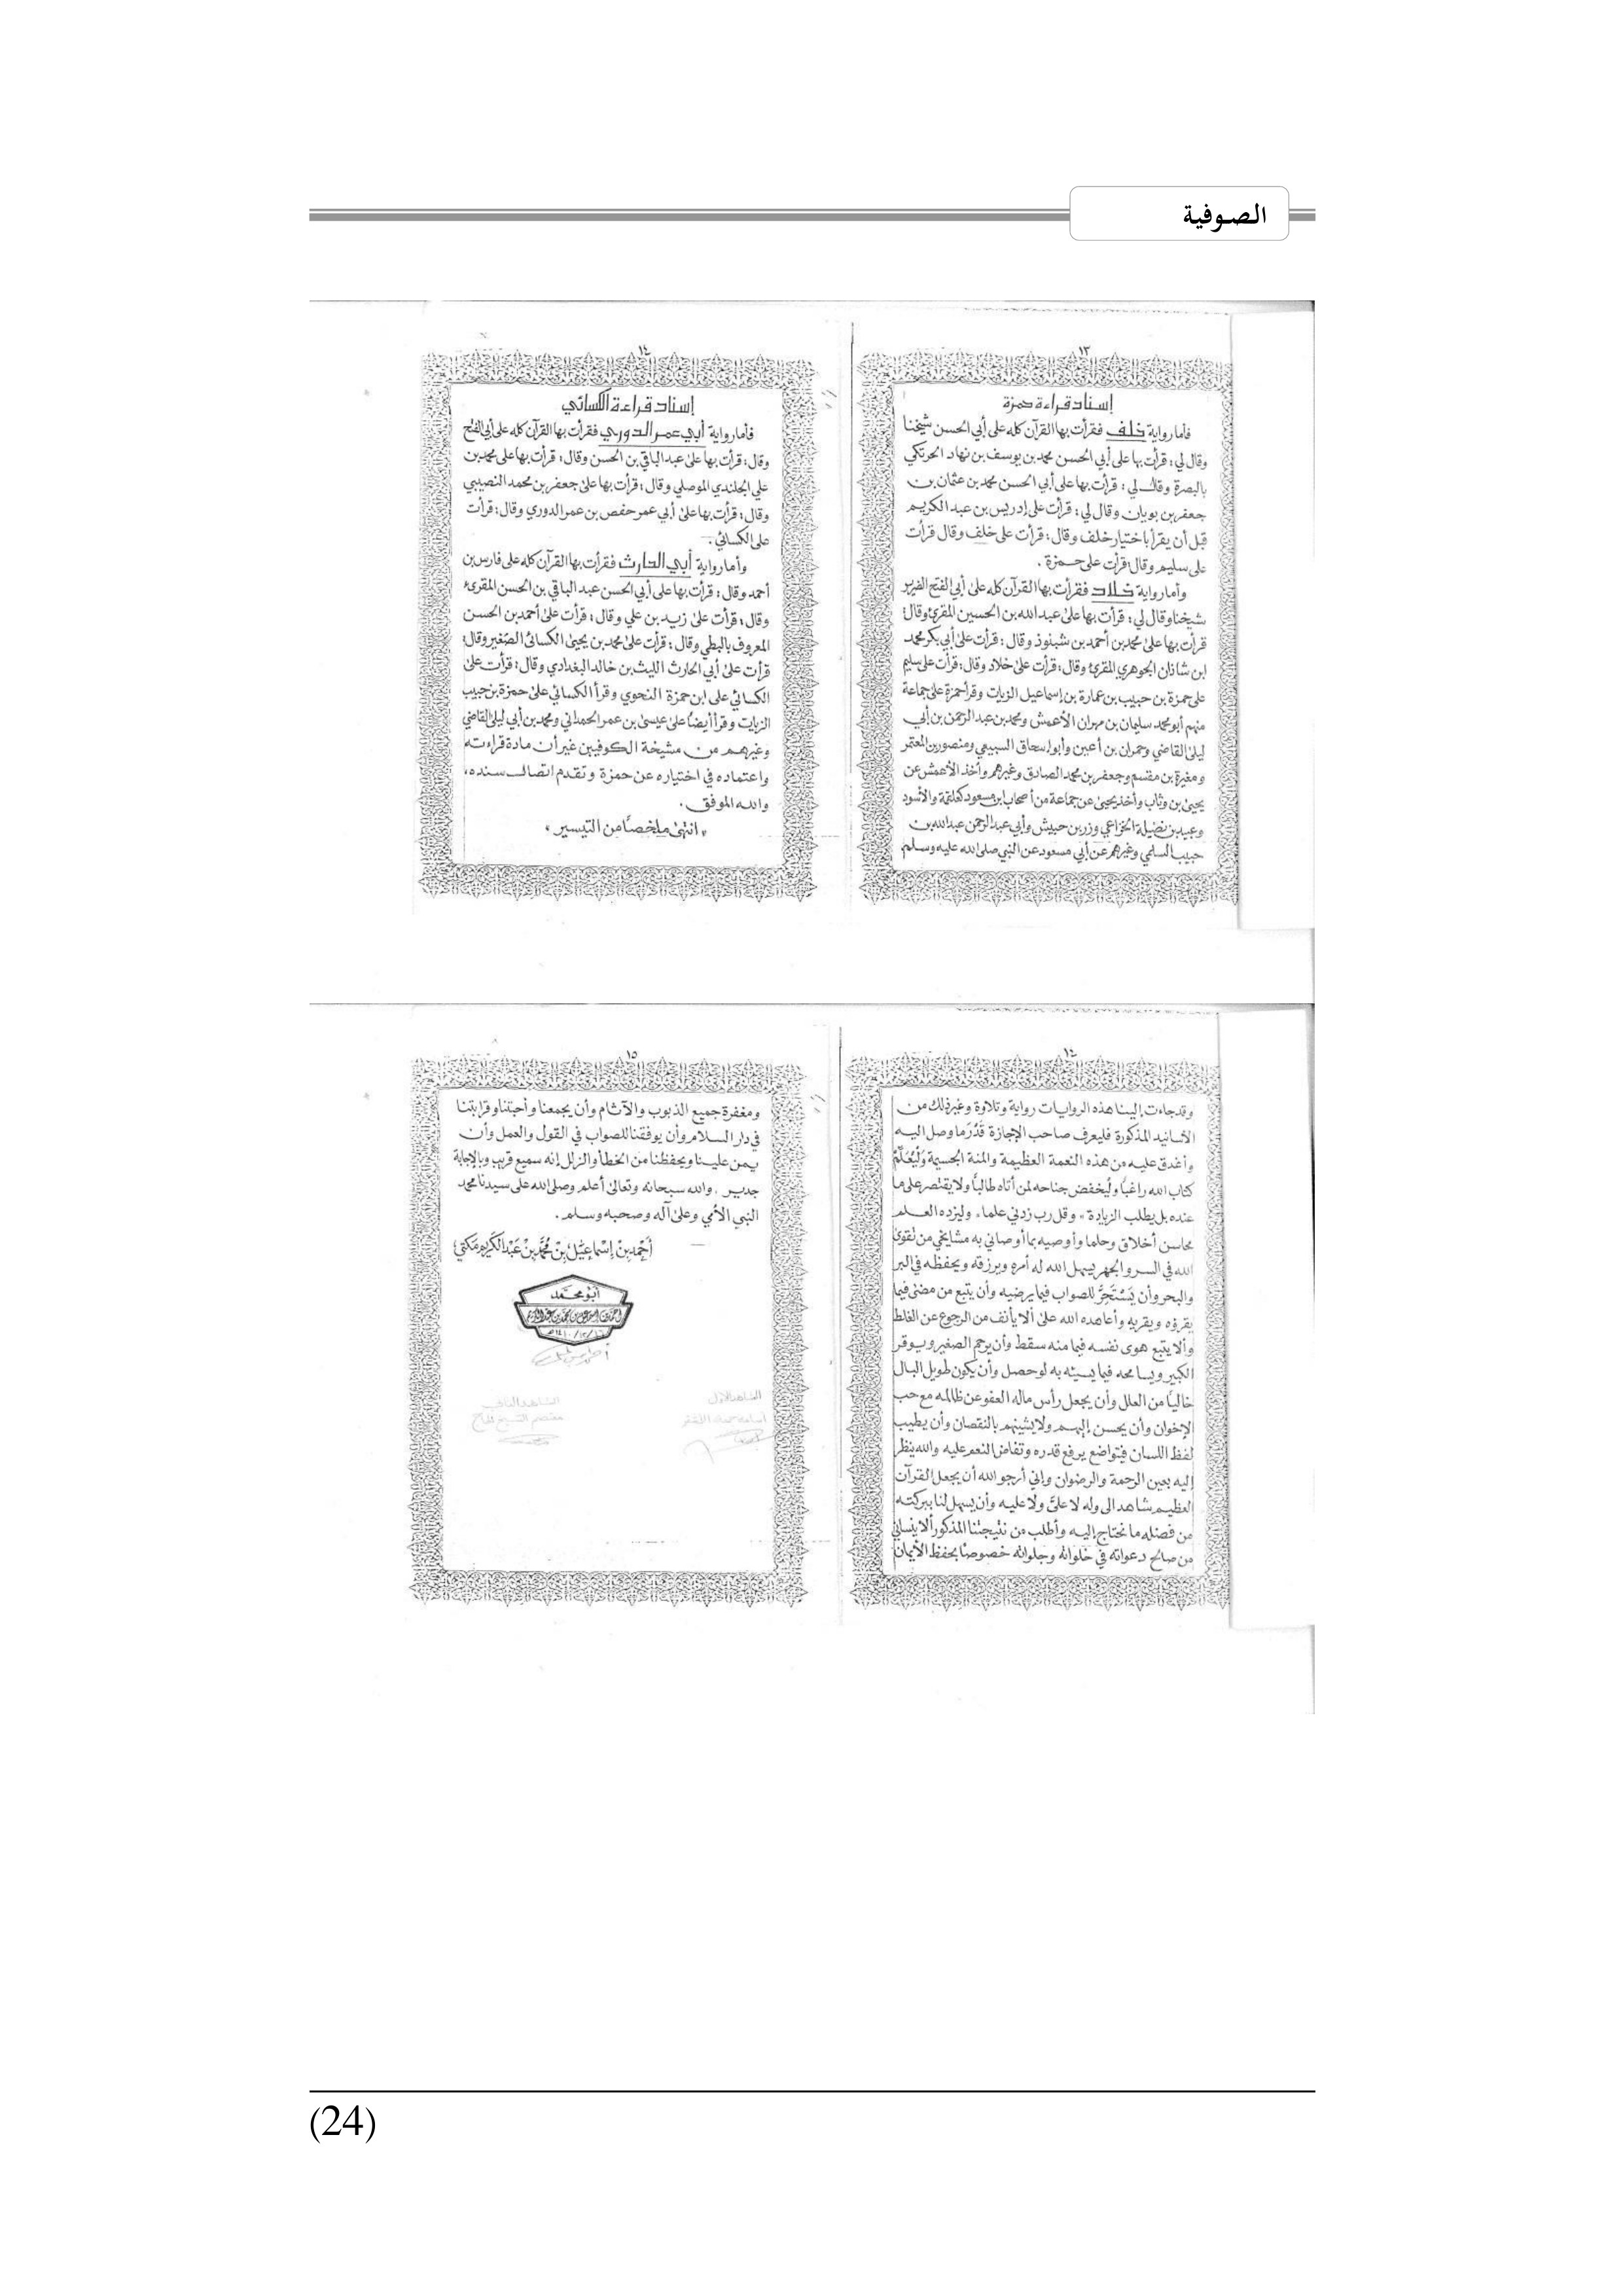 الصوفية
١٣
إسناد قراءة حمزة
فأما رواية خلف فقرأت بها القرآن كله على أبي الحسن شيخنا
وقال لي: قرأت بها على أبي الحسن محمد بن يوسف بن نهاد الحرتكي
بالبصرة وقال لي: قرأت بها على أبي الحسن محمد بن عثمان بن
جعفر بن بويان وقال لي: قرأت على إدريس بن عبد الكريم
قبل أن يقرأ باختيار خلف وقال: قرأت على خلف وقال قرأت
على سليم وقال قرأت على حمزة.
وأما رواية خلاد فقرأت بها القرآن كله على أبي الفتح الضرير
شيخنا وقال لي: قرأت بها على عبد الله بن الحسين المقرئ وقال:
قرأت بها على محمد بن أحمد بن شنبوذ وقال: قرأت على أبي بكر محمد
ابن شاذان الجوهري المقرئ وقال: قرأت على خلاد وقال: قرأت على سليم
على حمزة بن حبيب بن عمارة بن إسماعيل الزيات وقرأ حمزة على جماعة
منهم أبو محمد سليمان بن مهران الأعمش ومحمد بن عبد الرحمن بن أبي
ليلى القاضي وحمران بن أعين وأبو إسحاق السبيعي ومنصور بن المعتمر
ومغيرة بن مقسم وجعفر بن محمد الصادق وغيرهم وأخذ الأعمش عن
يحيى بن وثاب وأخذ يحيى عن جماعة من أصحاب ابن مسعود كعلقمة والأسود
وعبيد بن نضيلة الخزاعي وزر بن حبيش وأبي عبد الرحمن عبد الله بن
حبيب السلمي وغيرهم عن أبي مسعود عن النبي صلى الله عليه وسلم
١٤
إسناد قراءة الكسائي
فأما رواية أبي عمر الدوري فقرأت بها القرآن كله على أبي الفتح
وقال: قرأت بها على عبد الباقي بن الحسن وقال: قرأت بها على محمد بن
علي الجلندي الموصلي وقال: قرأت بها على جعفر بن محمد النصيبي
وقال: قرأت بها على أبي عمر حفص بن عمر الدوري وقال: قرأت
على الكسائي.
وأما رواية أبي الحارث فقرأت بها القرآن كله على فارس بن
أحمد وقال: قرأت بها على أبي الحسن عبد الباقي بن الحسن المقرئ
وقال: قرأت على زيد بن علي وقال: قرأت على أحمد بن الحسن
المعروف بالبطي وقال: قرأت على محمد بن يحيى الكسائي الصغير وقال:
قرأت على أبي الحارث الليث بن خالد البغدادي وقال: قرأت على
الكسائي على ابن حمزة النحوي وقرأ الكسائي على حمزة بن حبيب
الزيات وقرأ أيضا على عيسى بن عمر الحمداني ومحمد بن أبي ليلى القاضي
وغيرهم من مشيخة الكوفيين غير أن مادة قراءته
واعتماده في اختياره عن حمزة وتقدم اتصال سنده،
والله الموفق.
"انتهى ملخصا من التيسير"
١٤
وقد جاءت إلينا هذه الروايات رواية وتلاوة وغير ذلك من
الأسانيد المذكورة فليعرف صاحب الإجازة قَدْرَ ما وصل إليه
وأغدق عليه من هذه النعمة العظيمة والمنة الجسيمة وَلْيُعَلِّمْ
كتاب الله راغبا وليخفض جناحه لمن أتاه طالبا ولا يقتصر على ما
عنده بل يطلب الزيادة "وقل رب زدني علما" وليزده العلم
محاسن أخلاق وحلما وأوصيه بما أوصاني به مشايخي من تقوى
الله في السر والجهر يسهل الله له أمره ويرزقه ويحفظه في البر
والبحر وأن يَسْتَجِرَّ للصواب فيما يرضيه وأن يتبع من مضى فيما
يقرؤه ويقريه وأعاهده الله على ألا يأنف من الرجوع عن الغلط
وألا يتبع هوى نفسه فيما منه سقط وأن يرحم الصغير ويوقر
الكبير ويسامحه فيما يسيئه به لو حصل وأن يكون طويل البال
خاليا من العلل وأن يجعل رأس ماله العفو عن ظالمه مع حب
الإخوان وأن يحسن إليهم ولا يشينهم بالنقصان وأن يطيب
لفظ اللسان فيتواضع يرفع قدره وتفاض النعم عليه والله ينظر
إليه بعين الرحمة والرضوان وإني أرجو الله أن يجعل القرآن
العظيم شاهدا لي وله لا عليَّ ولا عليه وأن يسهل لنا ببركته
من فضله ما نحتاج إليه وأطلب من نتيجتنا المذكور ألا ينساني
من صالح دعواته في خلواته وجلواته خصوصا بحفظ الأيمان
١٥
ومغفرة جميع الذنوب والآثام وأن يجمعنا وأحبتنا وقرابتنا
في دار السلام وأن يوفقنا للصواب في القول والعمل وأن
يمن علينا ويحفظنا من الخطأ والزلل إنه سميع قريب وبالإجابة
جدير. والله سبحانه وتعالى أعلم وصلى الله على سيدنا محمد
النبي الأمي وعلى آله وصحبه وسلم.
أَحْمَد بن إسْمَاعِيْل بن مُحَمَّد بن عَبْد الكَرِيم مَكّي
أبو محمد
أحمد بن إسماعيل بن محمد بن عبد الكريم
الشاهد الأول
الشاهد الثاني
(24)